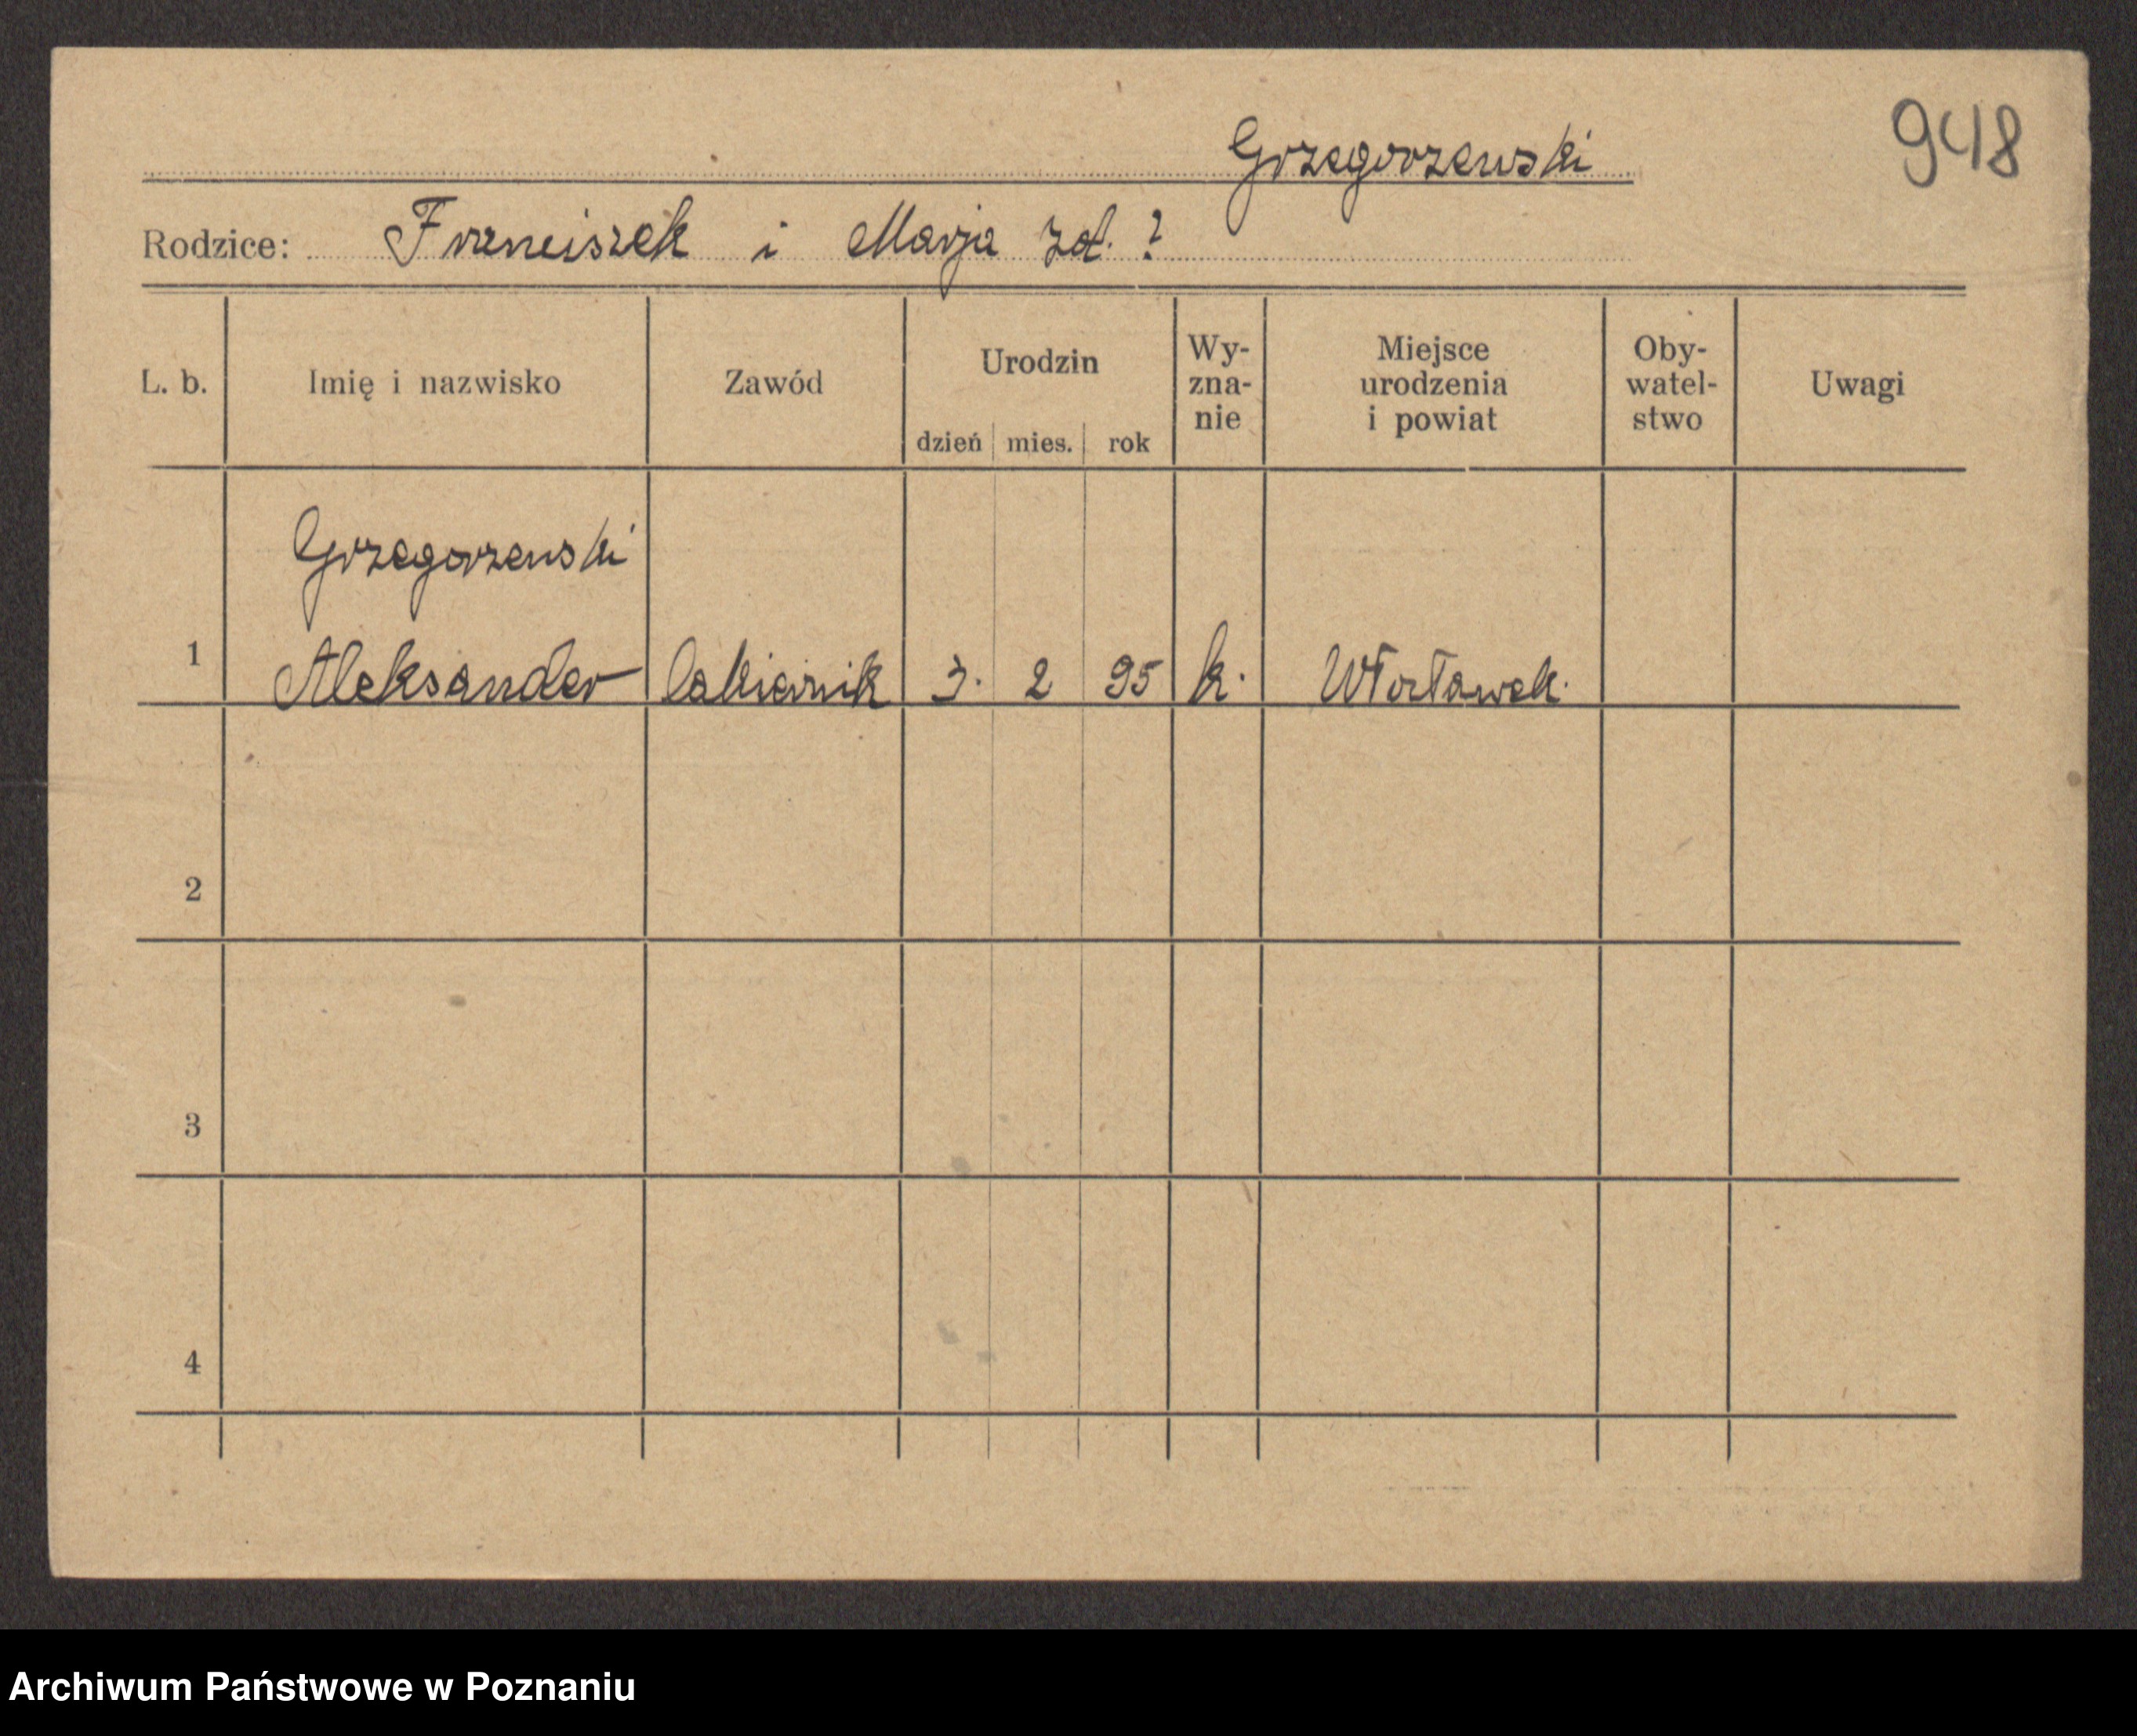 948
Grzegorzewski
Rodzice: Franciszek i Marja zd. ?
L. b. Imię i nazwisko Zawód Urodzin dzień mies. rok Wy-zna-nie Miejsce urodzenia i powiat Oby-watel-stwo Uwagi
Grzegorzewski
1 Aleksander lakiernik 3. 2 95 k. Włocławek.
2
3
4
Archiwum Państwowe w Poznaniu